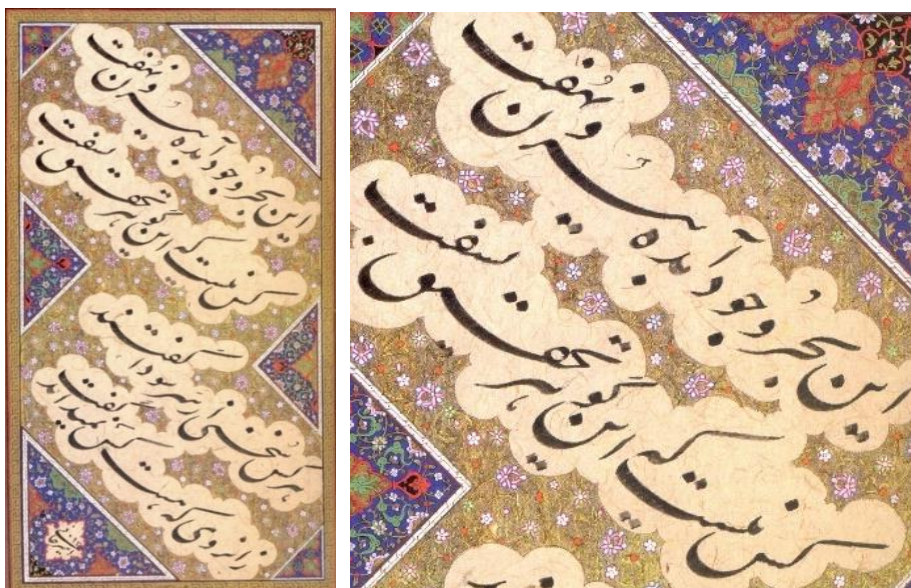 این بحر وجود آمده بیرون ز نهفت
کس نیست که این گوهر تحقیق بسفت
هر کس سخنی از سر سودا گفتند
زانروی که هست کس نمیداند گفت
این بحر وجود آمده بیرون ز نهفت
کس نیست که این گوهر تحقیق بسفت